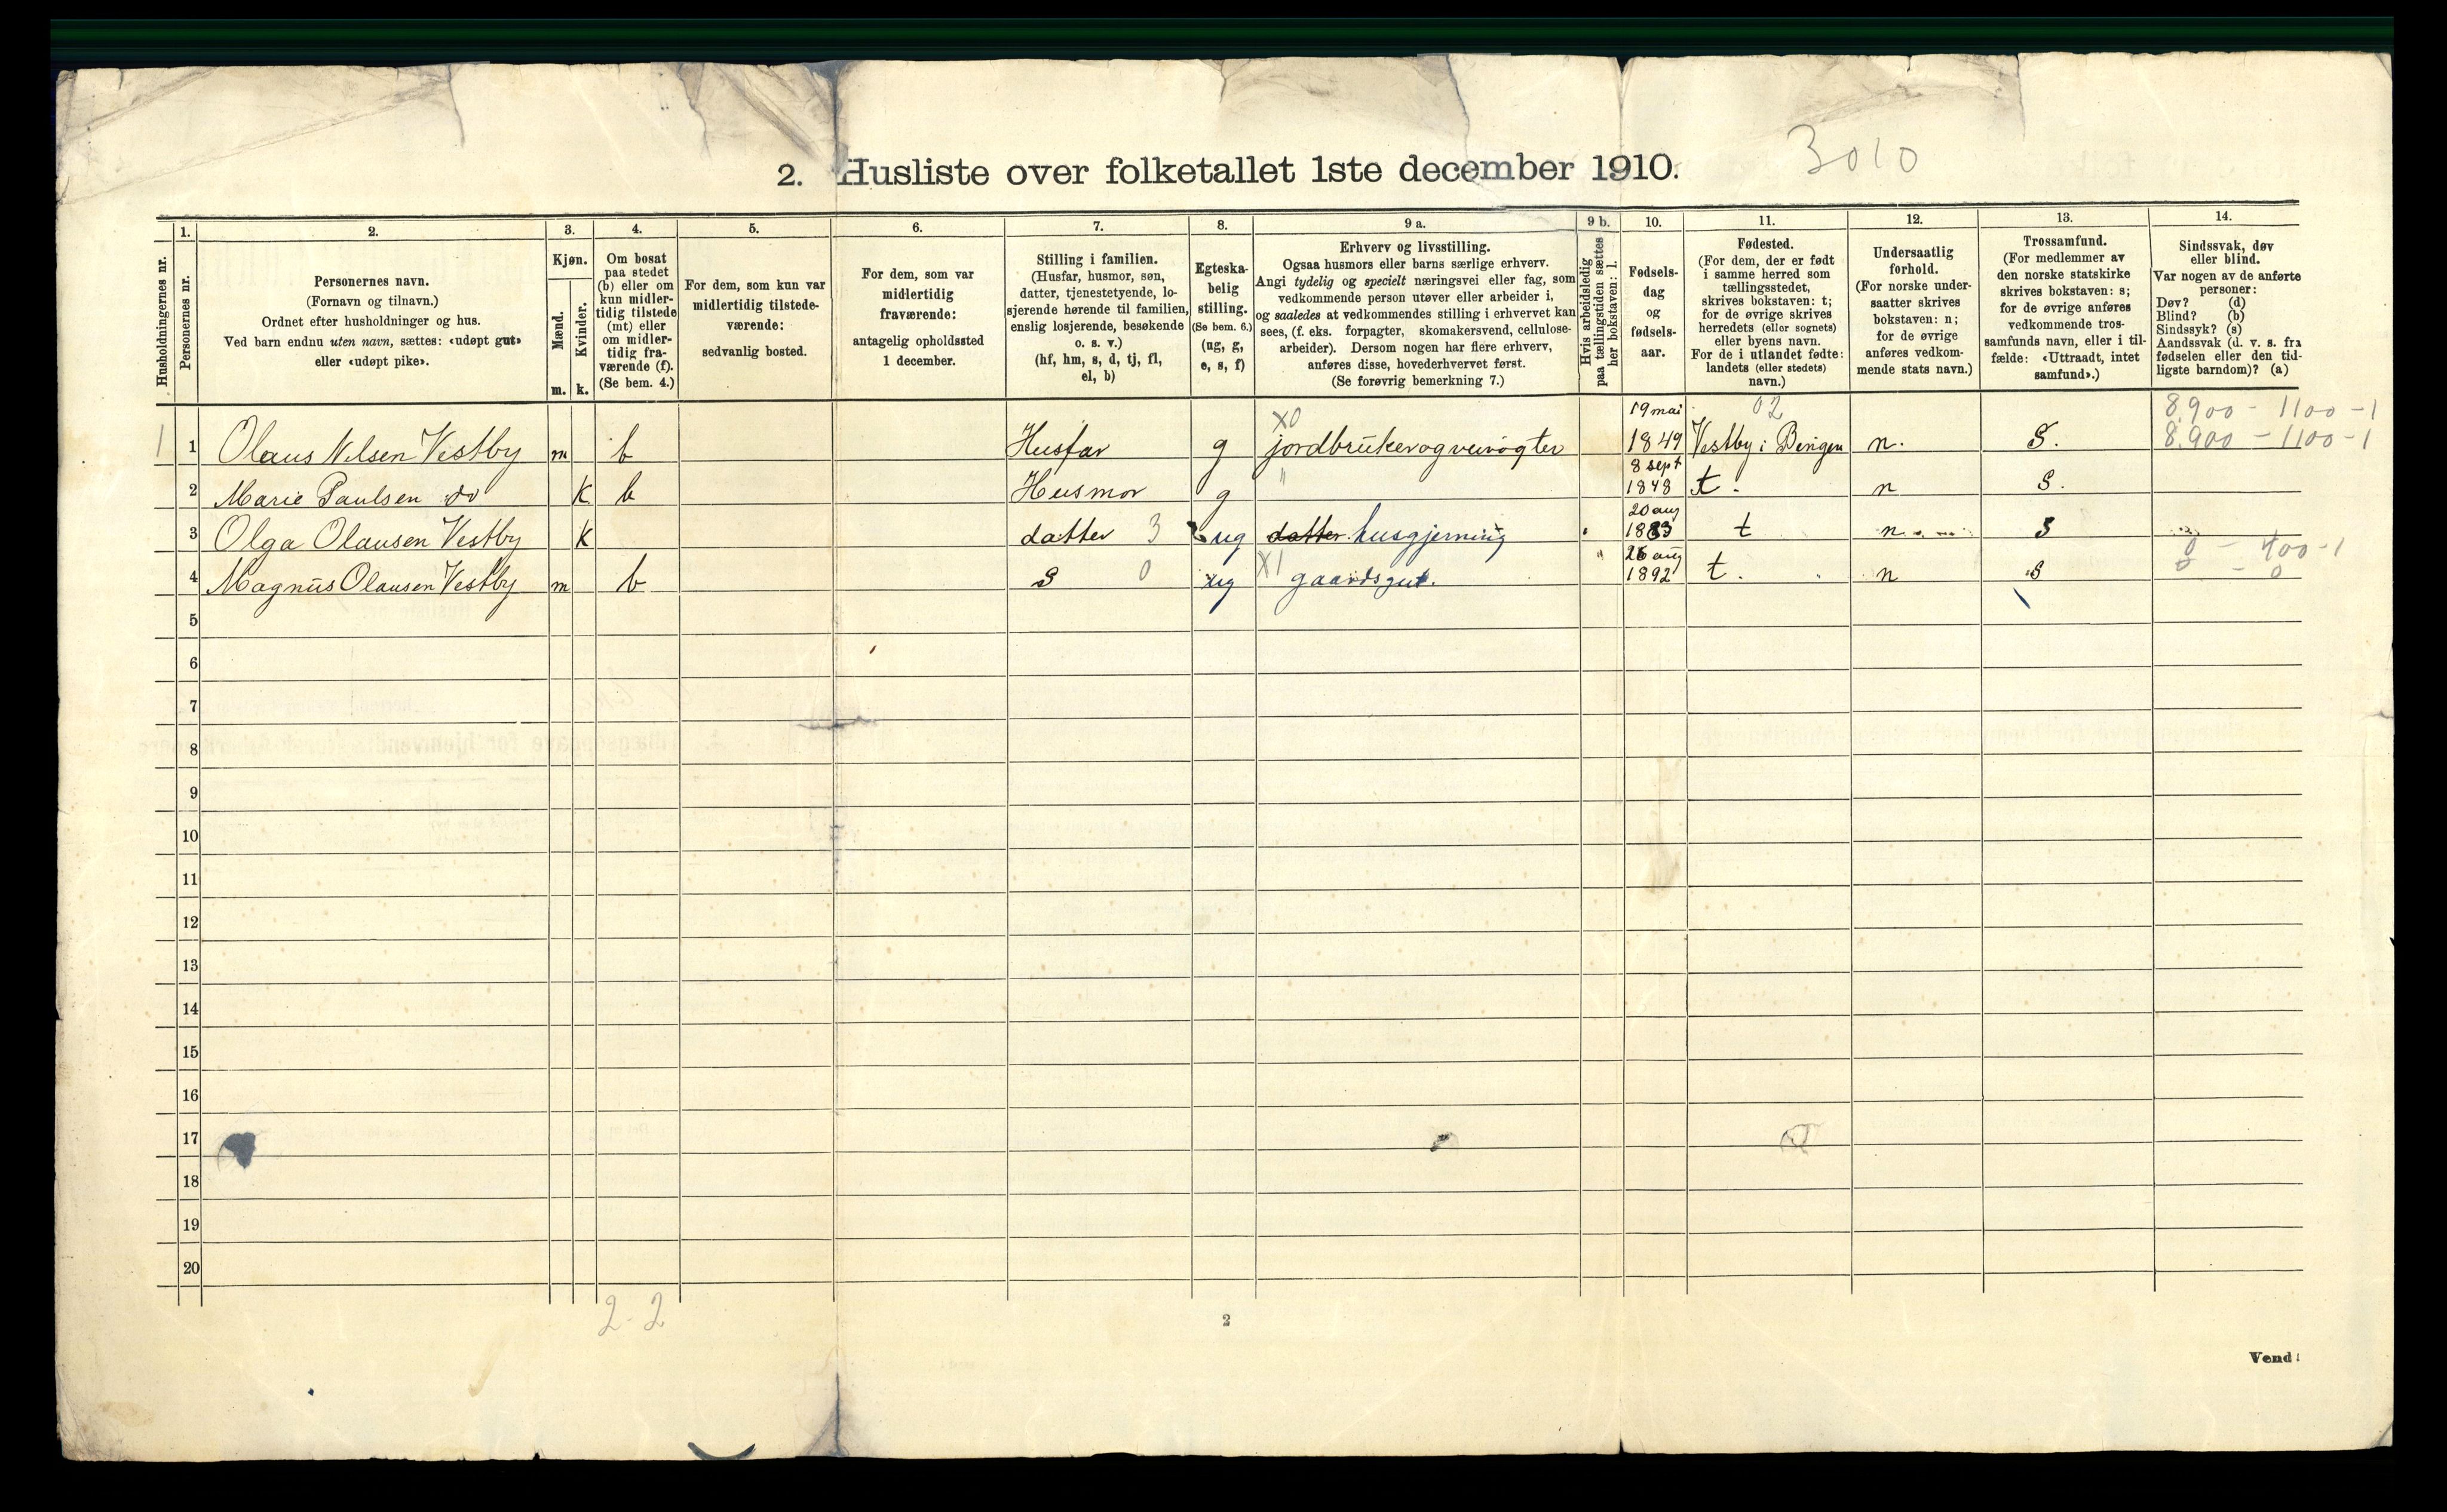 2. Husliste over folketallet 1ste december 1910.
3010
Husholdningernes nr.
1.
Personernes nr.
2.
Personernes navn.
(Fornavn og tilnavn.)
Ordnet efter husholdninger og hus.
Ved barn endnu uten navn, sættes: «udøpt gut»
eller «udøpt pike».
3.
Kjøn.
Mænd.
Kvinder.
m. k.
4.
Om bosat
paa stedet
(b) eller om
kun midler-
tidig tilstede
(mt) eller
om midler-
tidig fra-
værende (f).
(Se bem. 4.)
5.
For dem, som kun var
midlertidig tilstede-
værende:
sedvanlig bosted.
6.
For dem, som var
midlertidig
fraværende:
antagelig opholdssted
1 december.
7.
Stilling i familien.
(Husfar, husmor, søn,
datter, tjenestetyende, lo-
sjerende hørende til familien,
enslig losjerende, besøkende
o. s. v.)
(hf, hm, s, d, tj, fl,
el, b)
8.
Egteska-
belig
stilling.
(Se bem. 6.)
(ug, g,
e, s, f)
9 a.
Erhverv og livsstilling.
Ogsaa husmors eller barns særlige erhverv.
Angi tydelig og specielt næringsvei eller fag, som
vedkommende person utøver eller arbeider i,
og saaledes at vedkommendes stilling i erhvervet kan
sees, (f. eks. forpagter, skomakersvend, cellulose-
arbeider). Dersom nogen har flere erhverv,
anføres disse, hovederhvervet først.
(Se forøvrig bemerkning 7.)
9 b.
Hvis arbeidsledig
paa tællingstiden sættes
her bokstaven: l.
10.
Fødsels-
dag
og
fødsels-
aar.
11.
Fødested.
(For dem, der er født
i samme herred som
tællingsstedet,
skrives bokstaven: t;
for de øvrige skrives
herredets (eller sognets)
eller byens navn.
For de i utlandet fødte:
landets (eller stedets)
navn.)
12.
Undersaatlig
forhold.
(For norske under-
saatter skrives
bokstaven: n;
for de øvrige
anføres vedkom-
mende stats navn.)
13.
Trossamfund.
(For medlemmer av
den norske statskirke
skrives bokstaven: s;
for de øvrige anføres
vedkommende tros-
samfunds navn, eller i til-
fælde: «Uttraadt, intet
samfund».)
14.
Sindssvak, døv
eller blind.
Var nogen av de anførte
personer:
Døv? (d)
Blind? (b)
Sindssyk? (s)
Aandssvak (d. v. s. fra
fødselen eller den tid-
ligste barndom)? (a)
X0 19 mai 02 8.900 - 1100 - 1
1 1 Olaus Nilsen Vestby m b Husfar g jordbruker og veivogter 1849 Vestby i n. S. 8.900 - 1100 - 1
8 sept
2 Marie Paulsen do K b Husmor g " 1848 t. n S.
20 aug
3 Olga Olausen Vestby K datter 3 ug datter husgjerning 1883 t n S
X1 " 26 aug 0 - 400 - 1
4 Magnus Olausen Vestby m b S 0 ug gaardsgut. 1892 t. n S 0 - 0
5
6
7
8
9
10
11
12
13
14
15
16
17
18
19
20
2-2
2
Vend!